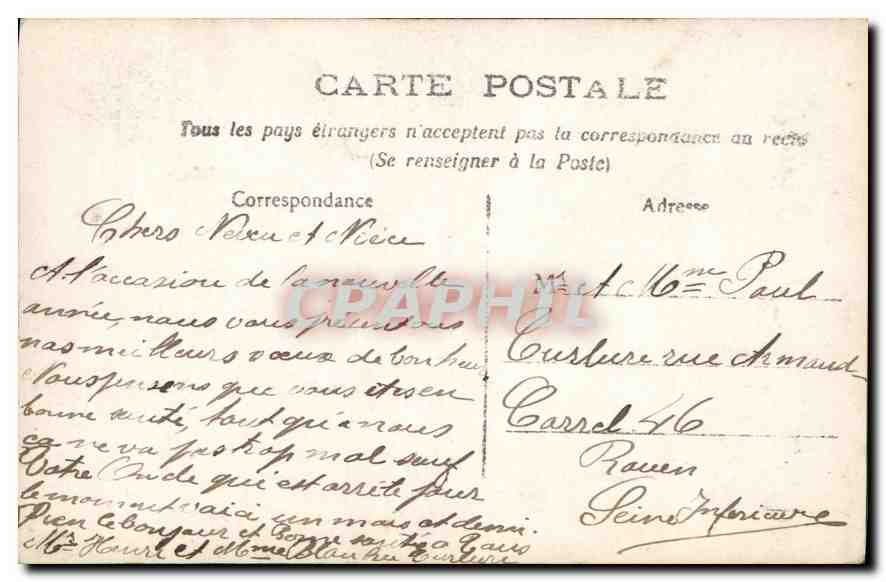 CARTE POSTALE
Tous les pays étrangers n'acceptent pas la correspondance au recto
(Se renseigner à la Poste)
Correspondance
Chers Neveu et Nièce
A l'occasion de la nouvelle
année, nous vous présentons
nos meilleurs vœux de bonheur
Nous pensons que vous êtes en
bonne santé, tant qu'à nous
ça ne va pas trop mal sauf
Votre Oncle qui est arrêté pour
le moment voici un mois et demi.
Bien le bonjour et bonne santé à tous
Mr Henri et Mme
Adresse
Mr et Mme Paul
rue Armand
Carrel 46
Rouen
Seine Inférieure
CPAPHIL